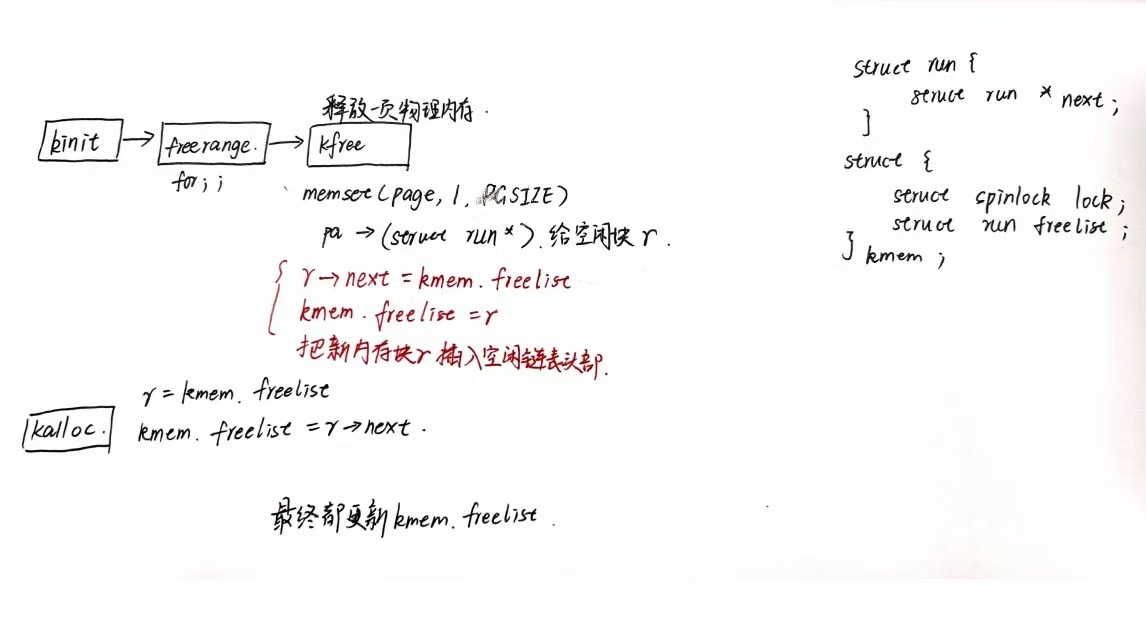 释放一页物理内存.
kinit → freerange. → kfree
for ; ;
memset (page, 1, PGSIZE)
pa → (struct run *). 给空闲块 r.
r → next = kmem. freelist
kmem. freelist = r
把新内存块 r 插入空闲链表头部.
r = kmem. freelist
kalloc. kmem. freelist = r → next.
最终都更新 kmem. freelist.
struct run {
struct run * next ;
}
struct {
struct spinlock lock ;
struct run freelist ;
} kmem ;